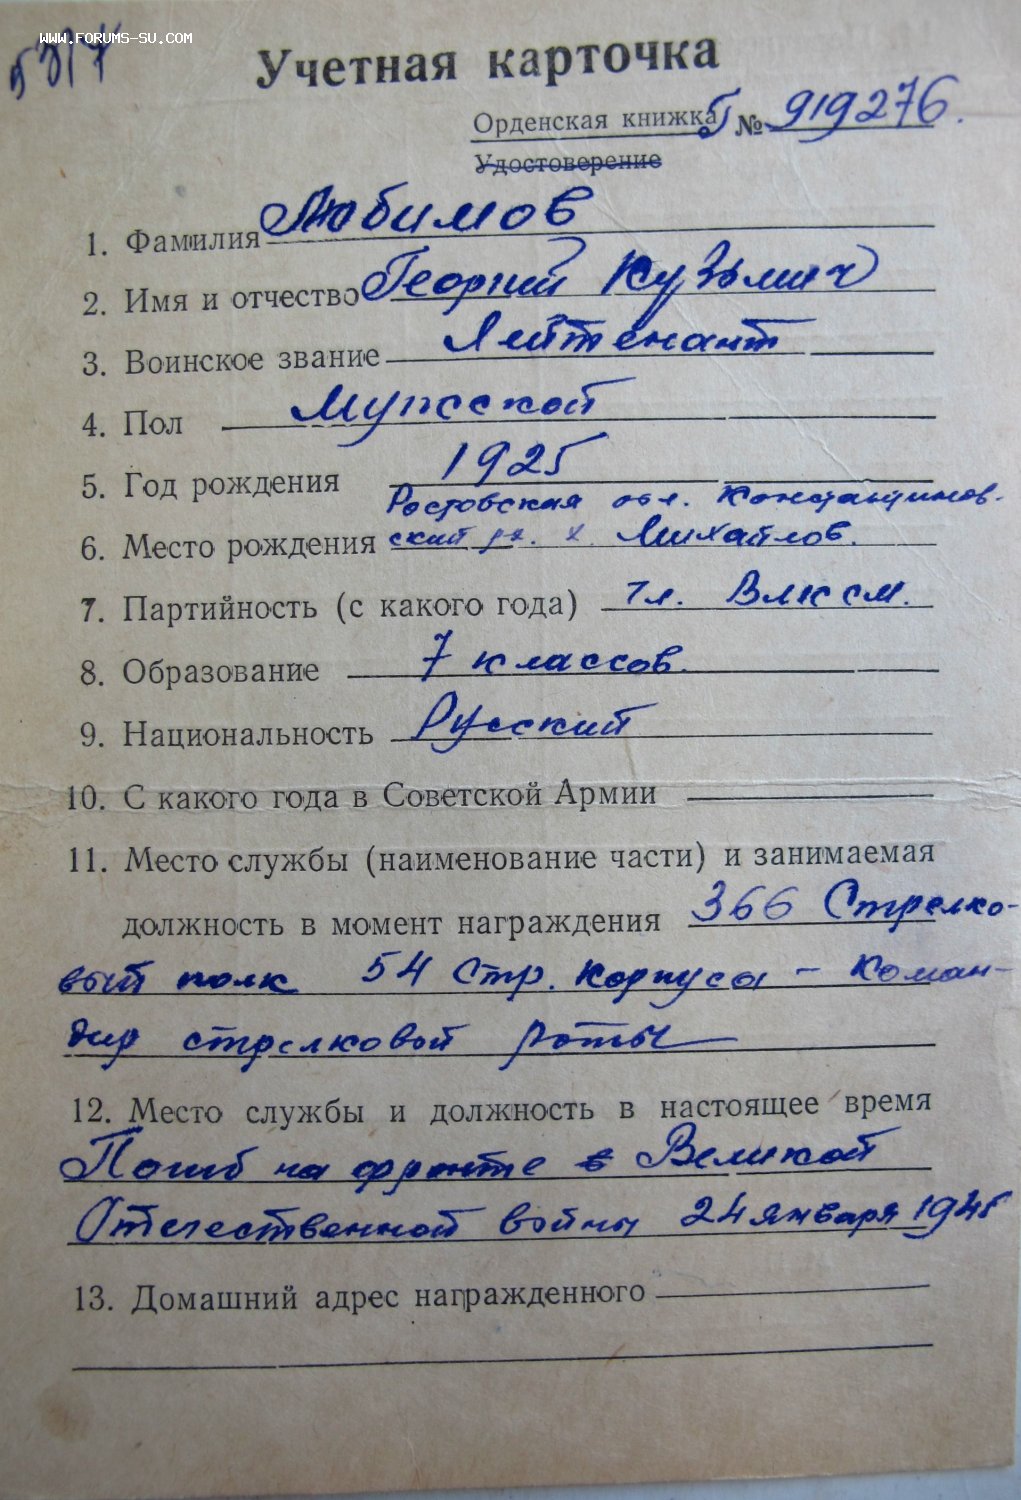 WWW.FORUMS-SU.COM
5317
Учетная карточка
Орденская книжка Г № 919276.
Удостоверение
1. Фамилия Любимов
2. Имя и отчество Георгий Кузьмич
3. Воинское звание Лейтенант
4. Пол Мужской
5. Год рождения 1925
Ростовская обл. Константинов-
6. Место рождения ский х. Михайлов.
7. Партийность (с какого года) чл. ВЛКСМ.
8. Образование 7 классов.
9. Национальность Русский
10. С какого года в Советской Армии
11. Место службы (наименование части) и занимаемая
должность в момент награждения 366 Стрелко-
вый полк 54 Стр. Корпуса - Коман-
дир стрелковой роты
12. Место службы и должность в настоящее время
Погиб на фронте в Великой
Отечественной войны 24 января 1945
13. Домашний адрес награжденного